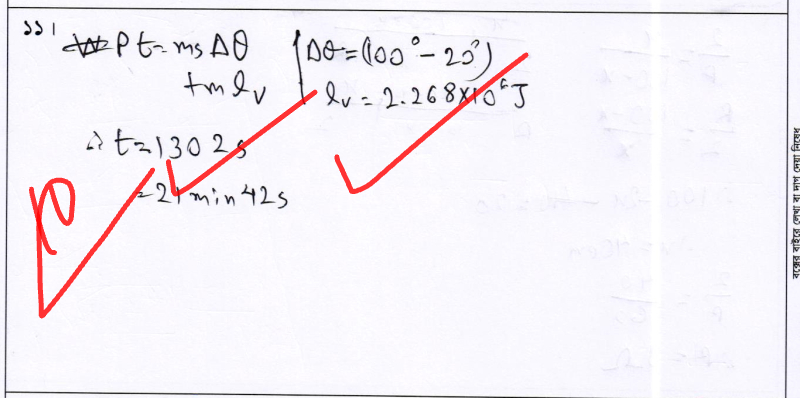 ১১।
Pt = msΔθ + mlv
Δθ = (100° - 20°)
lv = 2.268×10⁶J
∴ t = 1302s
= 21 min 42s
10
বক্সের বাইরে লেখা বা দাগ দেয়া নিষেধ